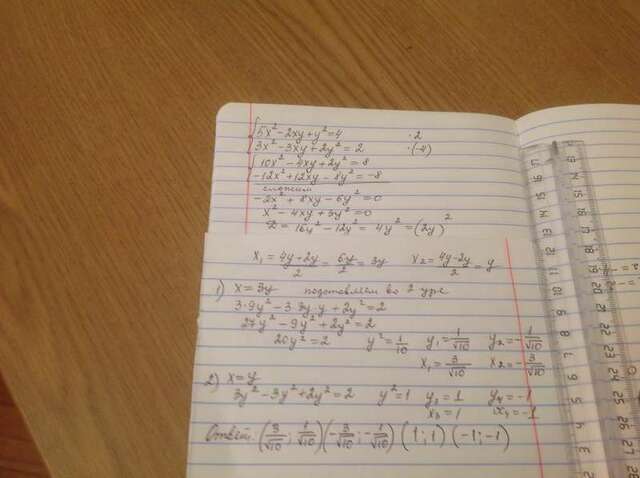 5x² - 2xy + y² = 4 · 2
3x² - 3xy + 2y² = 2 · (-4)
10x² - 4xy + 2y² = 8
-12x² + 12xy - 8y² = -8
сложим
-2x² + 8xy - 6y² = 0
x² - 4xy + 3y² = 0
D = 16y² - 12y² = 4y² = (2y)²
x₁ = (4y+2y)/2 = 6y/2 = 3y x₂ = (4y-2y)/2 = y
1) x = 3y подставляем во 2 ур-е
3·9y² - 3·3y·y + 2y² = 2
27y² - 9y² + 2y² = 2
20y² = 2 y² = 1/10 y₁ = 1/√10 y₂ = -1/√10
x₁ = 3/√10 x₂ = -3/√10
2) x = y
3y² - 3y² + 2y² = 2 y² = 1 y₃ = 1 y₄ = -1
x₃ = 1 x₄ = -1
Ответ: (3/√10; 1/√10) (-3/√10; -1/√10) (1; 1) (-1; -1)